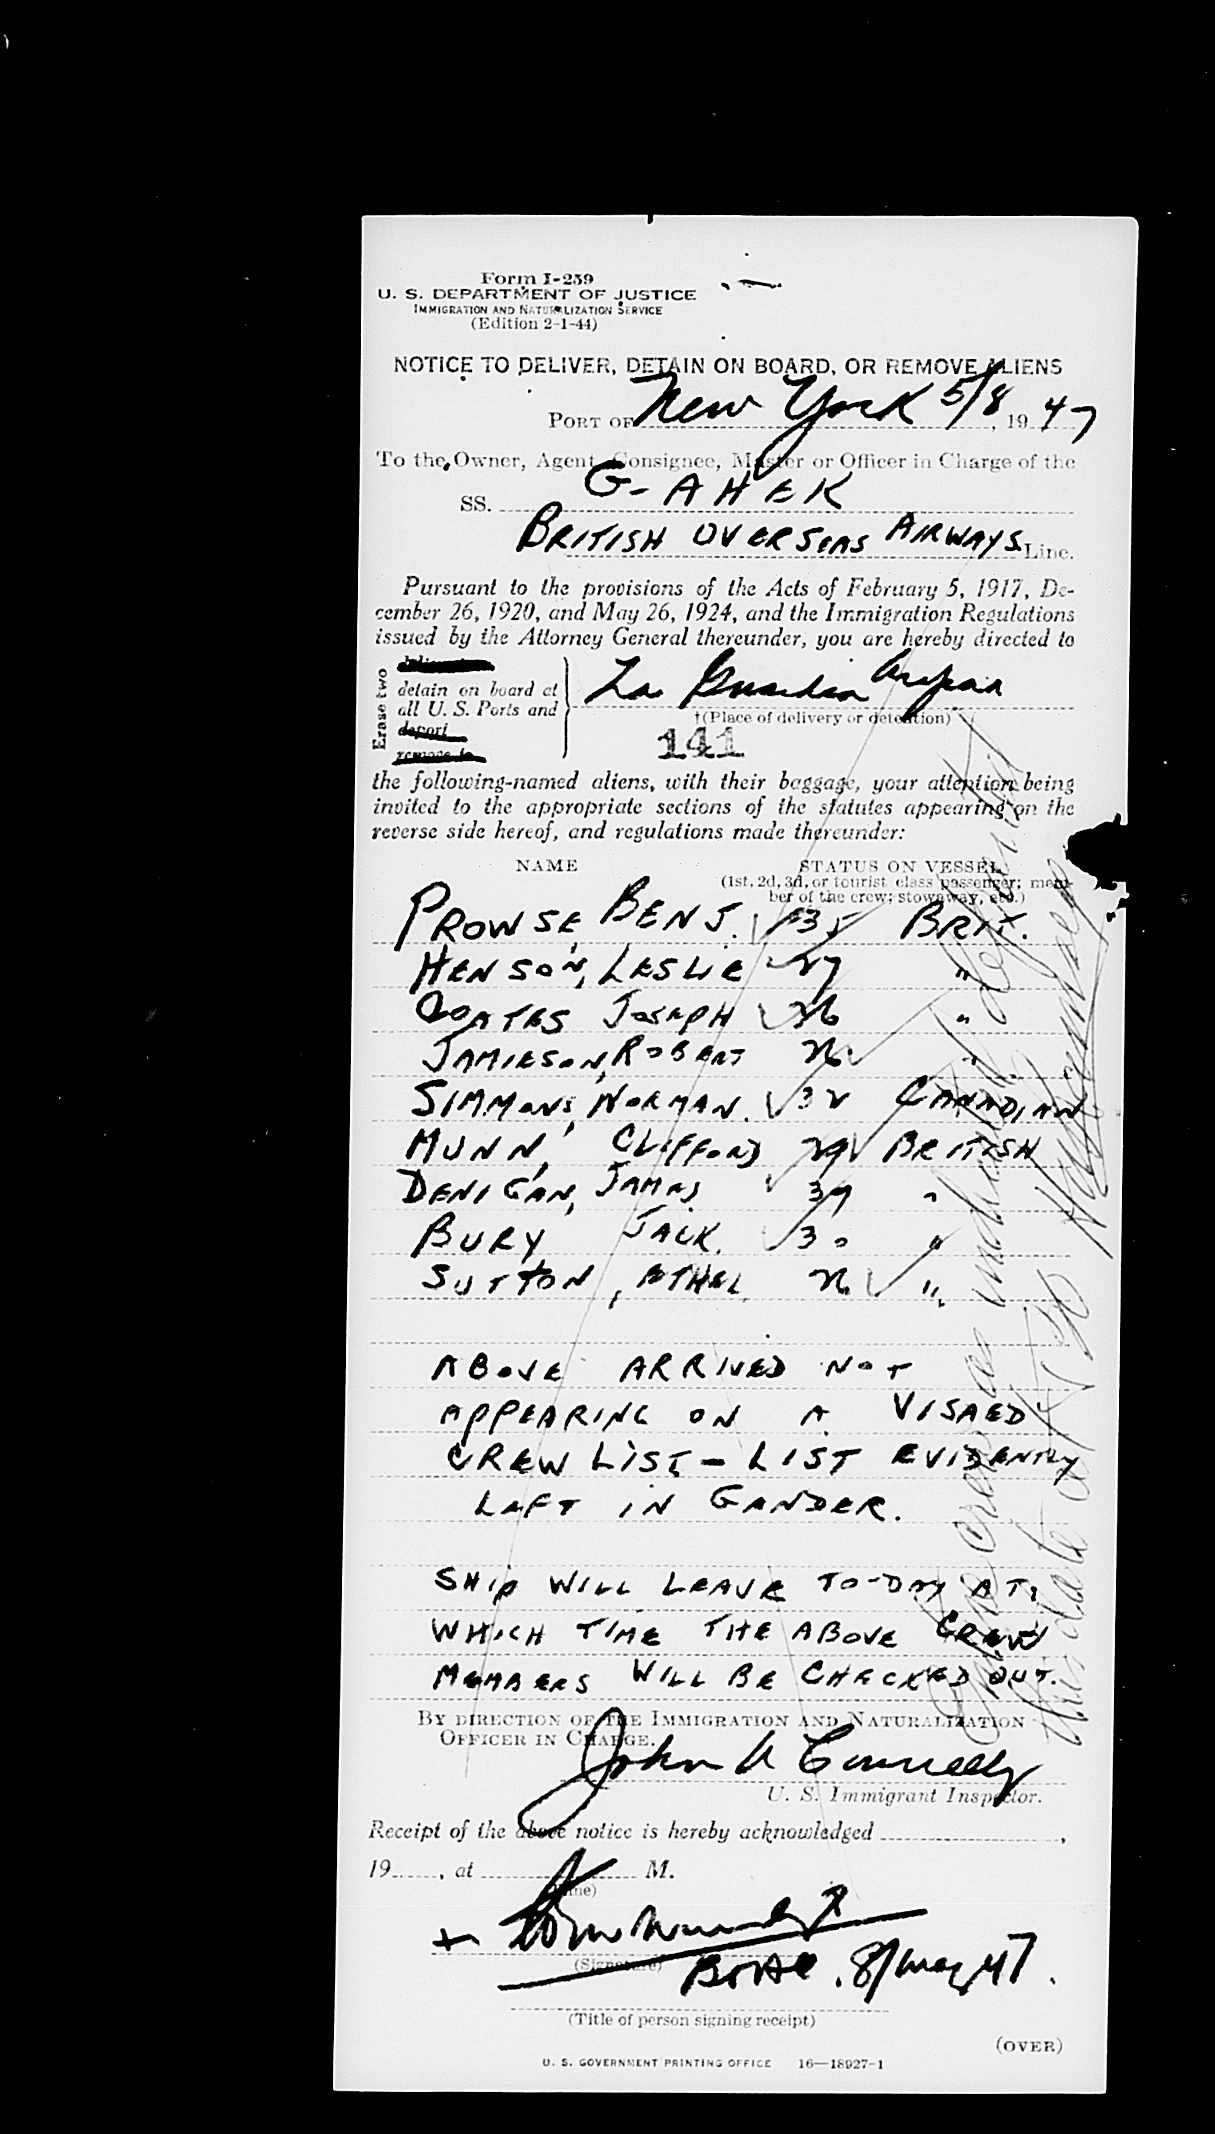 Form I-259
U. S. DEPARTMENT OF JUSTICE
IMMIGRATION AND NATURALIZATION SERVICE
(Edition 2-1-44)
NOTICE TO DELIVER, DETAIN ON BOARD, OR REMOVE ALIENS
PORT OF New York 5/8, 1947
To the Owner, Agent, Consignee, Master or Officer in Charge of the
SS. G-AHEK
BRITISH OVERSEAS AIRWAYS Line.
Pursuant to the provisions of the Acts of February 5, 1917, De-
cember 26, 1920, and May 26, 1924, and the Immigration Regulations
issued by the Attorney General thereunder, you are hereby directed to
Erase two
detain on board at
all U. S. Ports and
deport
remove to
La Guardia Airport
†(Place of delivery or detention)
141
the following-named aliens, with their baggage, your attention being
invited to the appropriate sections of the statutes appearing on the
reverse side hereof, and regulations made thereunder:
NAME STATUS ON VESSEL
(1st, 2d, 3d, or tourist class passenger; mem-
ber of the crew; stowaway, etc.)
PROWSE, BENJ. 35 BRIT.
HENSON, LESLIE 27 "
COATES JOSEPH 26 "
JAMIESON, ROBERT 26 "
SIMMONS, NORMAN. 32 CANADIAN
MUNN, CLIFFORD 29 BRITISH
DENIGAN, JAMES 39 "
BURY JACK. 30 "
SUTTON, ETHEL 26 "
ABOVE ARRIVED NOT
APPEARING ON A VISAED
CREW LIST - LIST EVIDENTLY
LEFT IN GANDER.
SHIP WILL LEAVE TO-DAY AT
WHICH TIME THE ABOVE CREW
MEMBERS WILL BE CHECKED OUT.
BY DIRECTION OF THE IMMIGRATION AND NATURALIZATION
OFFICER IN CHARGE.
John A Connelly
U. S. Immigrant Inspector.
Receipt of the above notice is hereby acknowledged ,
19 , at M.
(Time)
(Signature)
BOAC. 8/May/47.
(Title of person signing receipt)
(OVER)
U. S. GOVERNMENT PRINTING OFFICE 16—18927-1
crew as indicated departed
this date at